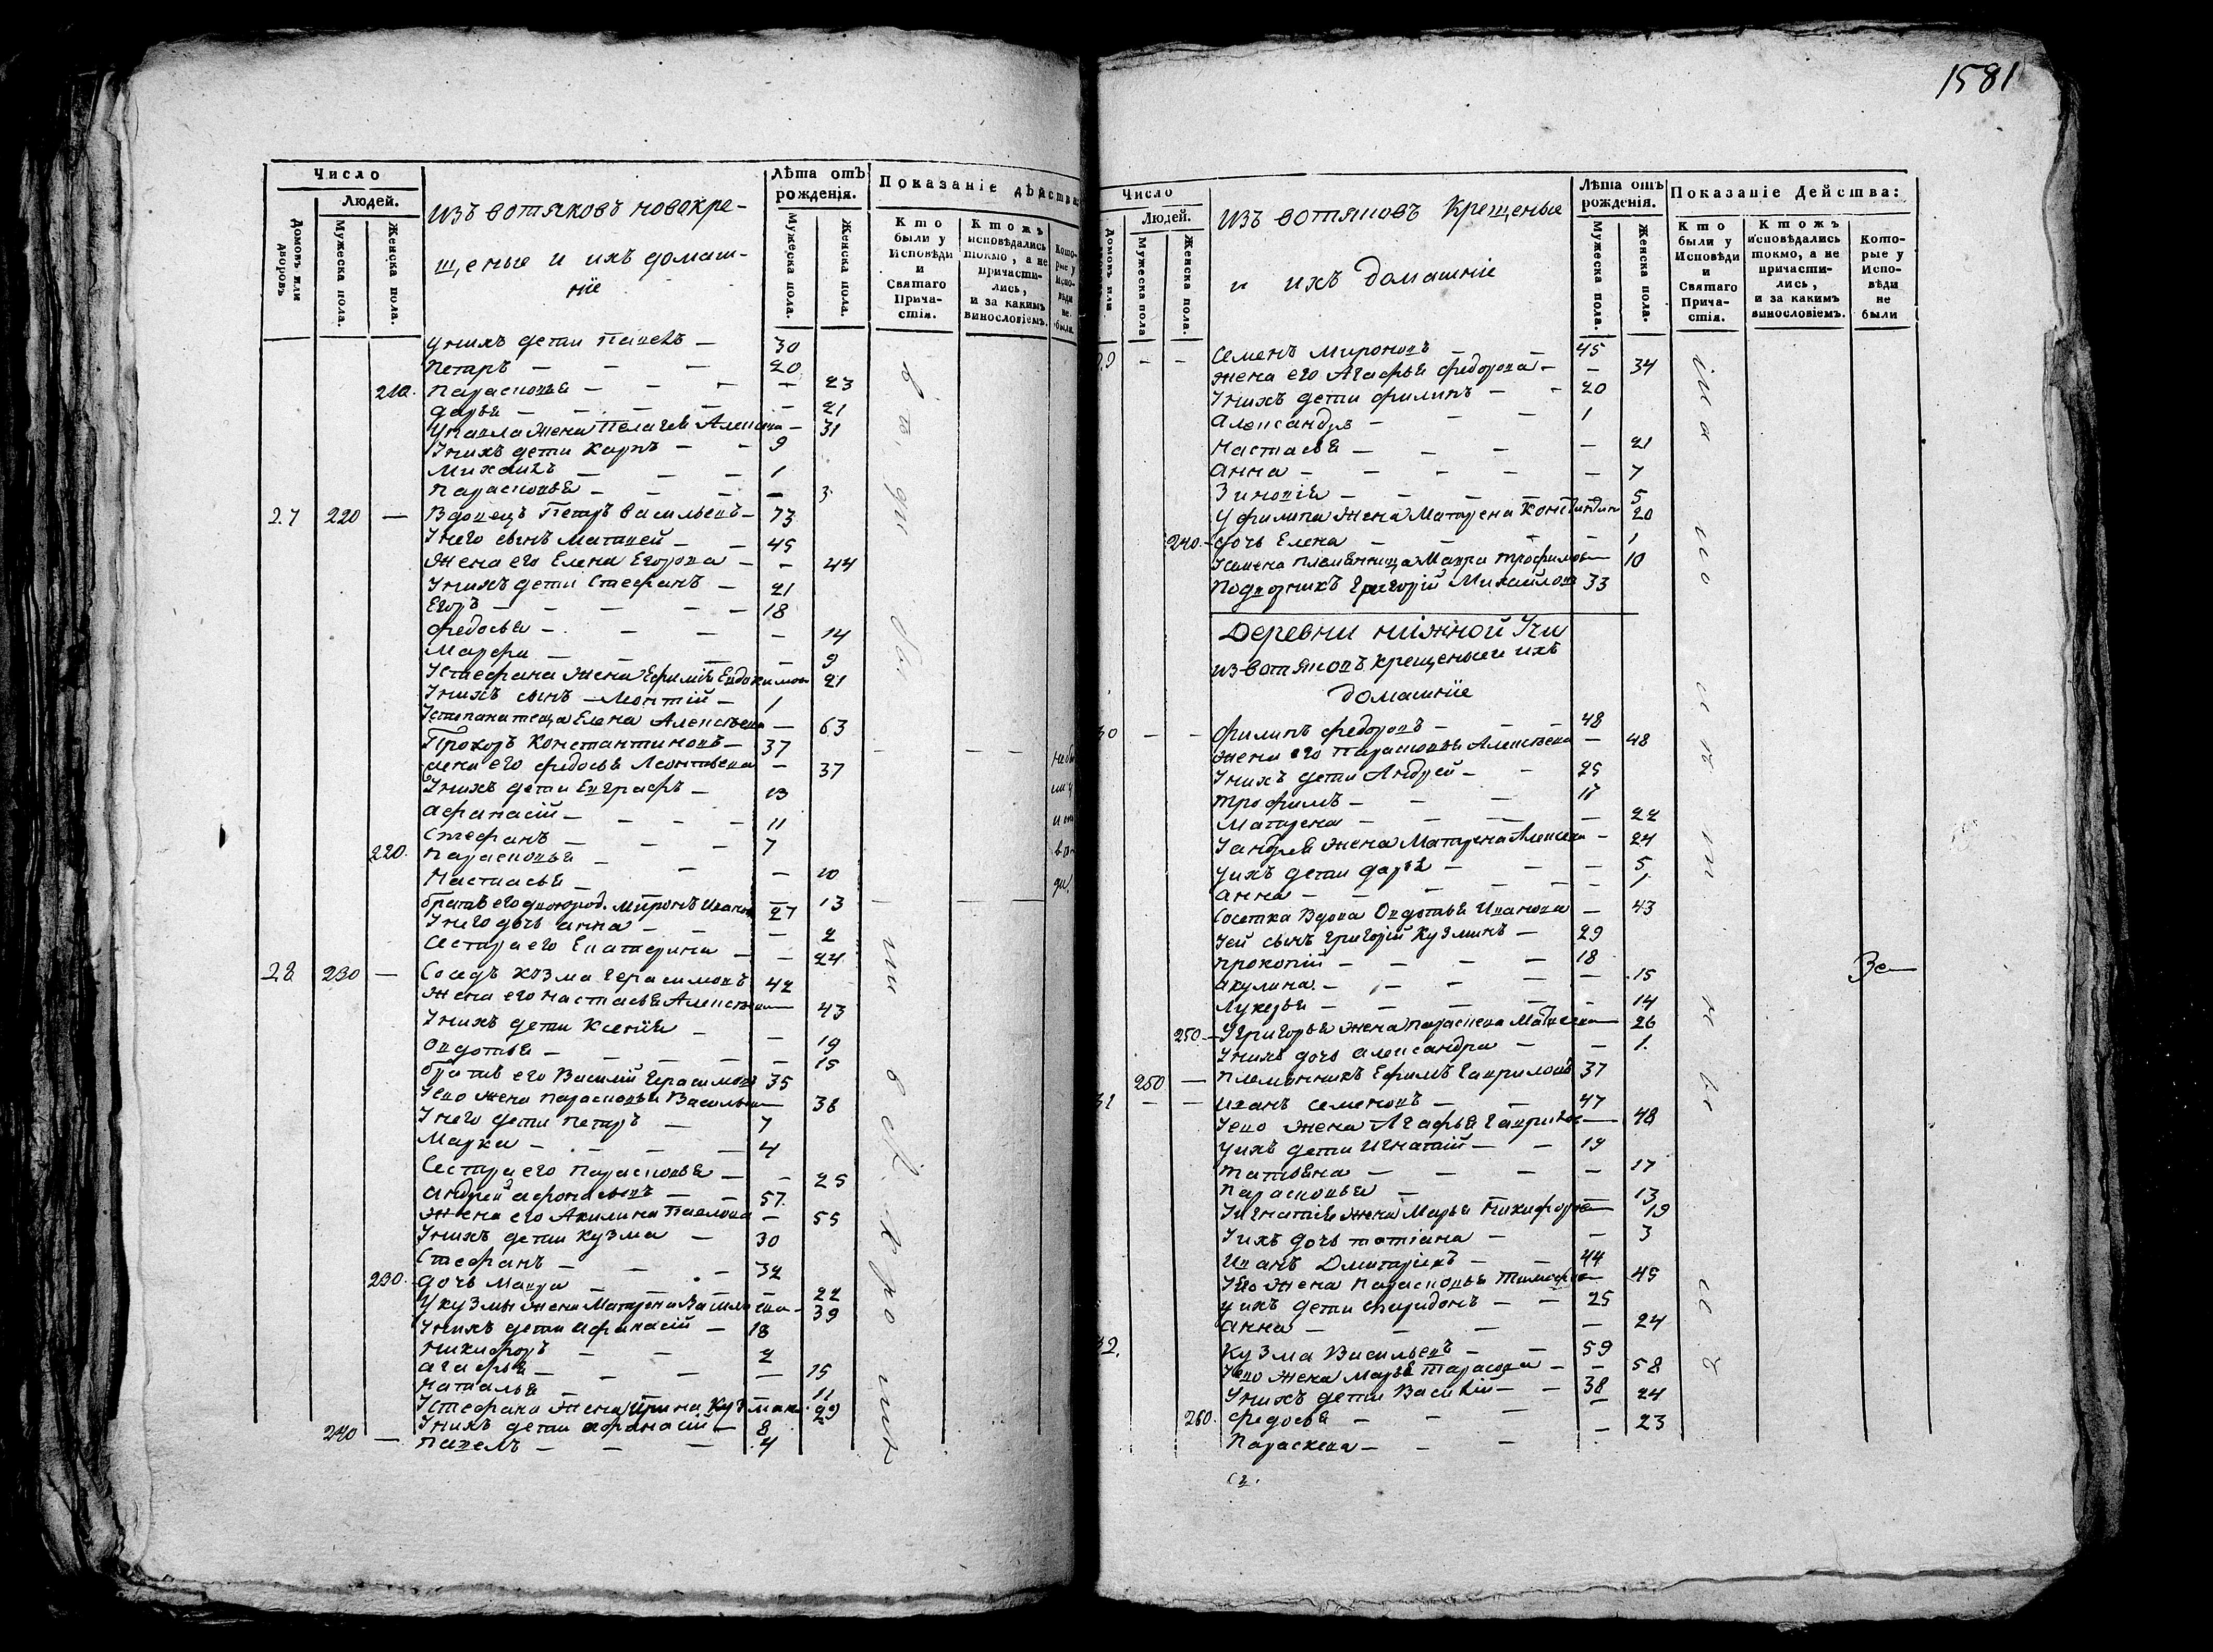 1581
Число
Людей.
Домовъ или дворовъ
Мужеска пола.
Женска пола.
Изъ вотяковъ новокре-
щеные и ихъ домаш-
ніе
Лѣта отъ рожденія.
Мужеска пола.
Женска пола.
Показаніе дѣйства
Кто были у Исповѣди и Святаго Прича-стія.
Ктожъ исповѣдались токмо, а не причасти-лись, и за какимъ винословіемъ.
Кото-рые у Испо-вѣди не были.
Унихъ дети Павелъ — 30
Петръ — — — 20
210. Парасковья — — — — 23
Дарья — — — — — 21
У павла жена Пелагея Алексеева — 31
Унихъ дети Карпъ — — 9
Михаилъ — — — 1
Парасковья — — — — 3
27 220 — Вдовецъ Петръ Васильевъ — 73
Унего сынъ Матвей — — 45
Жена его Елена Егорова — — 44
Унихъ дети Стефанъ — 21
Егоръ — — — — 18
Федосья — — — — 14
Марфа — — — — 9
Устефана жена Ефимія Евдокимова 21
Унихъ сынъ — Леонтій — 1
Устепана теща Елена Алексеева — 63
Прохоръ Константиновъ — 37
жена его Федосья Леонтьева — 37
Унихъ дети Евграфъ — 13
Афанасій — — — — 11
Стефанъ — — — 7
220. Парасковья — — — 10
Настасья — — 13
братъ его двоюрод. Миронъ Иванов 27
Унего дочь анна — — — 2
Сестра его Екатерина — — 24
28 230 — Соседъ Козма Герасимовъ 42
Жена его Настасья Алексеева — 43
Унихъ дети Ксенія — — 19
Овдотья — — — — — 15
братъ его Василій Герасимовъ 35
Уево жена Парасковья Васильева — 38
Унего дети Петръ — 7
Марка — — — — 4
Сестра его Парасковья — — 25
Андрей афонасьевъ — — 57.
Жена его Акилина Павлова — 55
Унихъ дети Кузма — 30
Стефанъ — — — 32
230. Дочь Мавра — — — — 22
У кузмы жена Матрена — 39
Унихъ дети афанасій — 18
Никифоръ — — 2
агафья — — — — 15
Наталья — — — 11
У Стефана жена Ирина Кузмина 29
Унихъ дети афонасій — 8
240 — Павелъ — — — 4
Число
Людей.
Домовъ или
Мужеска пола
Женска пола.
Изъ вотяковъ Крещеные
и ихъ домашніе
Лѣта отъ рожденія.
Мужеска пола.
Женска пола.
Показаніе Действа:
Кто были у Исповѣди и Святаго Прича-стія.
Ктожъ исповѣдались токмо, а не причасти-лись, и за какимъ винословіемъ.
Кото-рые у Испо-вѣди не были
Семенъ Мироновъ — — 45
жена его Агафья Федорова — — 34
Унихъ дети филипъ — — 20
Александръ — — — 1
Настасья — — — — 21
Анна — — — — — 7
Зиновія — — — — 5
У филипа жена Матрена Констандин 20
240. — дочь Елена — — — — 1
Усемена племянница Мавра Трофимова — 10
Подворникъ Григорій Михайловъ 33
Деревни нижной Учи
Из вотяковъ крещеныи и ихъ
домашніе
30 — — филипъ федоровъ — — 48
жена его Парасковья Алексеева — 48
Унихъ дети Андрей — — 25
Трофимъ — — — 17
Матрена — — — — 22
Уандрея жена Матрена Алексеева — 24
Уихъ дети дарья — — — 5
анна — — — — — 1
Соседка Вдова Овдотья Иванова — 43
Уей сынъ Григорій Кузминъ — 29
Прокопій — — — — 18
акулина — — — — 15
Лукерья — — — — 14
250 — У Григорья жена Параскева Матвеева — 26
Унихъ дочь александра — — 1.
250 — Племянникъ Ефимъ Гавриловъ 37
31 — — Иванъ Семеновъ — — 47
Уево жена Агафья Гаврилова — 48
Уихъ дети Игнатій — — 19
Татьяна — — — — 17
Парасковья — — 13
Уигнатія жена Марья Никифорова — 19
Уихъ дочь татіана — — 3
Иванъ Дмитріевъ — — 44
Уево жена Парасковья Тимофеева — 45
Уихъ дети Спиридонъ — — 25
анна — — — — 24
32. Кузма Васильевъ — — 59
Уево жена Марья Тарасова — — 58
Унихъ дети Василій — — 38
260. Федосья — — — — 24
Параскева — — — 23